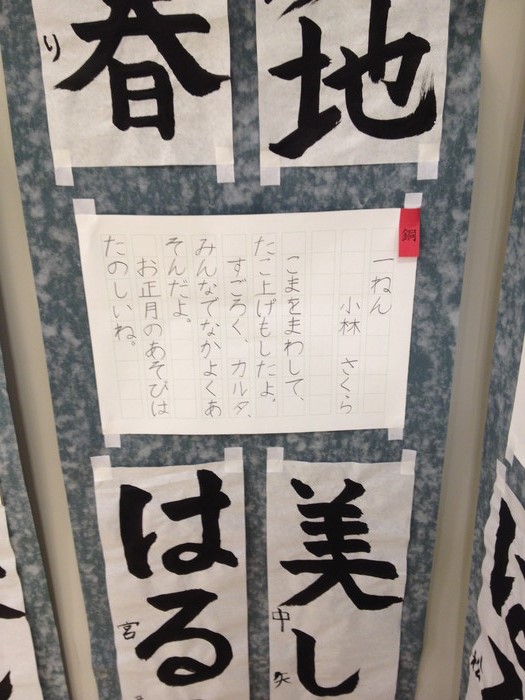 地
春
り
銅
一ねん
小林 さくら
こまをまわして、
たこ上げもしたよ。
すごろく、カルタ、
みんなでなかよくあ
そんだよ。
お正月のあそびは
たのしいね。
美し
中
矢
はる
宮